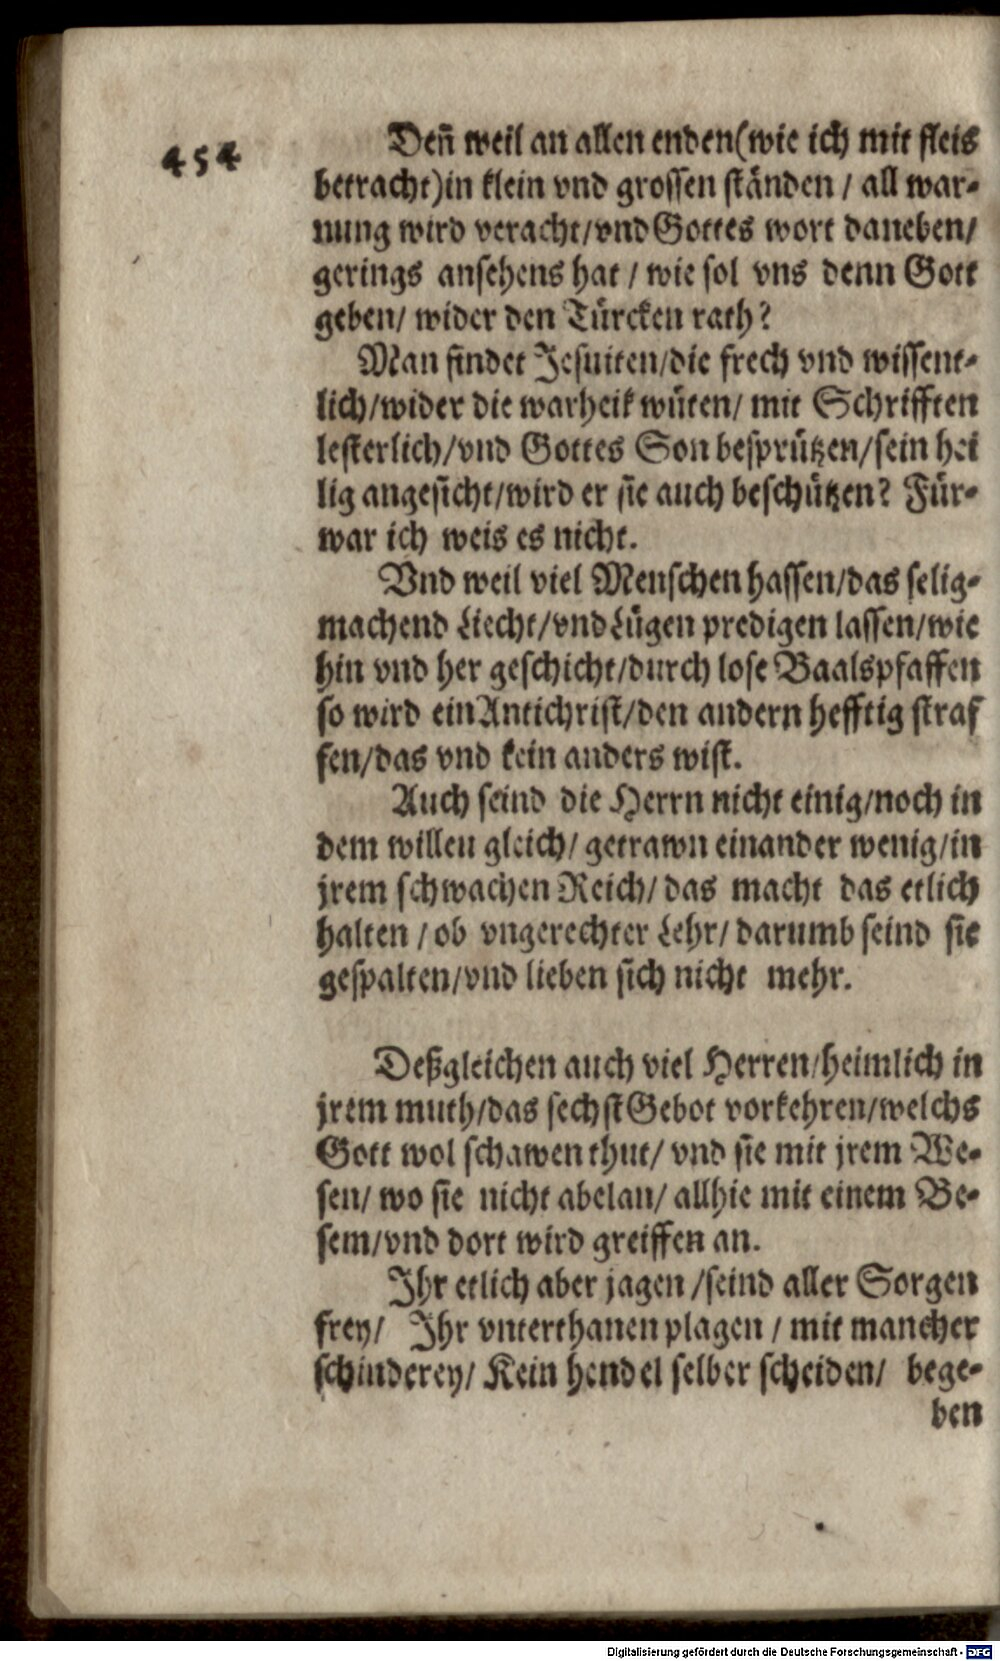 454
Deñ weil an allen enden(wie ich mit fleis
betracht)in klein vnd grossen ständen / all war-
nung wird veracht/vnd Gottes wort daneben/
gerings ansehens hat / wie sol vns denn Gott
geben/ wider den Türcken rath?
Man findet Jesuiten/die frech vnd wissent-
lich/wider die warheit wüten/ mit Schrifften
lesterlich/vnd Gottes Son besprützen/sein hei
lig angesicht/wird er sie auch beschützen? Für-
war ich weis es nicht.
Vnd weil viel Menschen hassen/das selig-
machend Liecht/vnd Lügen predigen lassen/wie
hin vnd her geschicht/durch lose Baalspfaffen
so wird ein Antichrist/den andern hefftig straf
fen/das vnd kein anders wist.
Auch seind die Herrn nicht einig/noch in
dem willen gleich/ getrawn einander wenig/in
jrem schwachen Reich/ das macht das etlich
halten / ob vngerechter Lehr/ darumb seind sie
gespalten/vnd lieben sich nicht mehr.
Deßgleichen auch viel Herren/heimlich in
jrem muth/das sechst Gebot vorkehren/welchs
Gott wol schawen thut/ vnd sie mit jrem We-
sen/ wo sie nicht abelan/ allhie mit einem Be-
sem/vnd dort wird greiffen an.
Ihr etlich aber jagen /seind aller Sorgen
frey/ Ihr vnterthanen plagen / mit mancher
schinderey/ Kein hendel selber scheiden/ bege-
ben
Digitalisierung gefördert durch die Deutsche Forschungsgemeinschaft - DFG